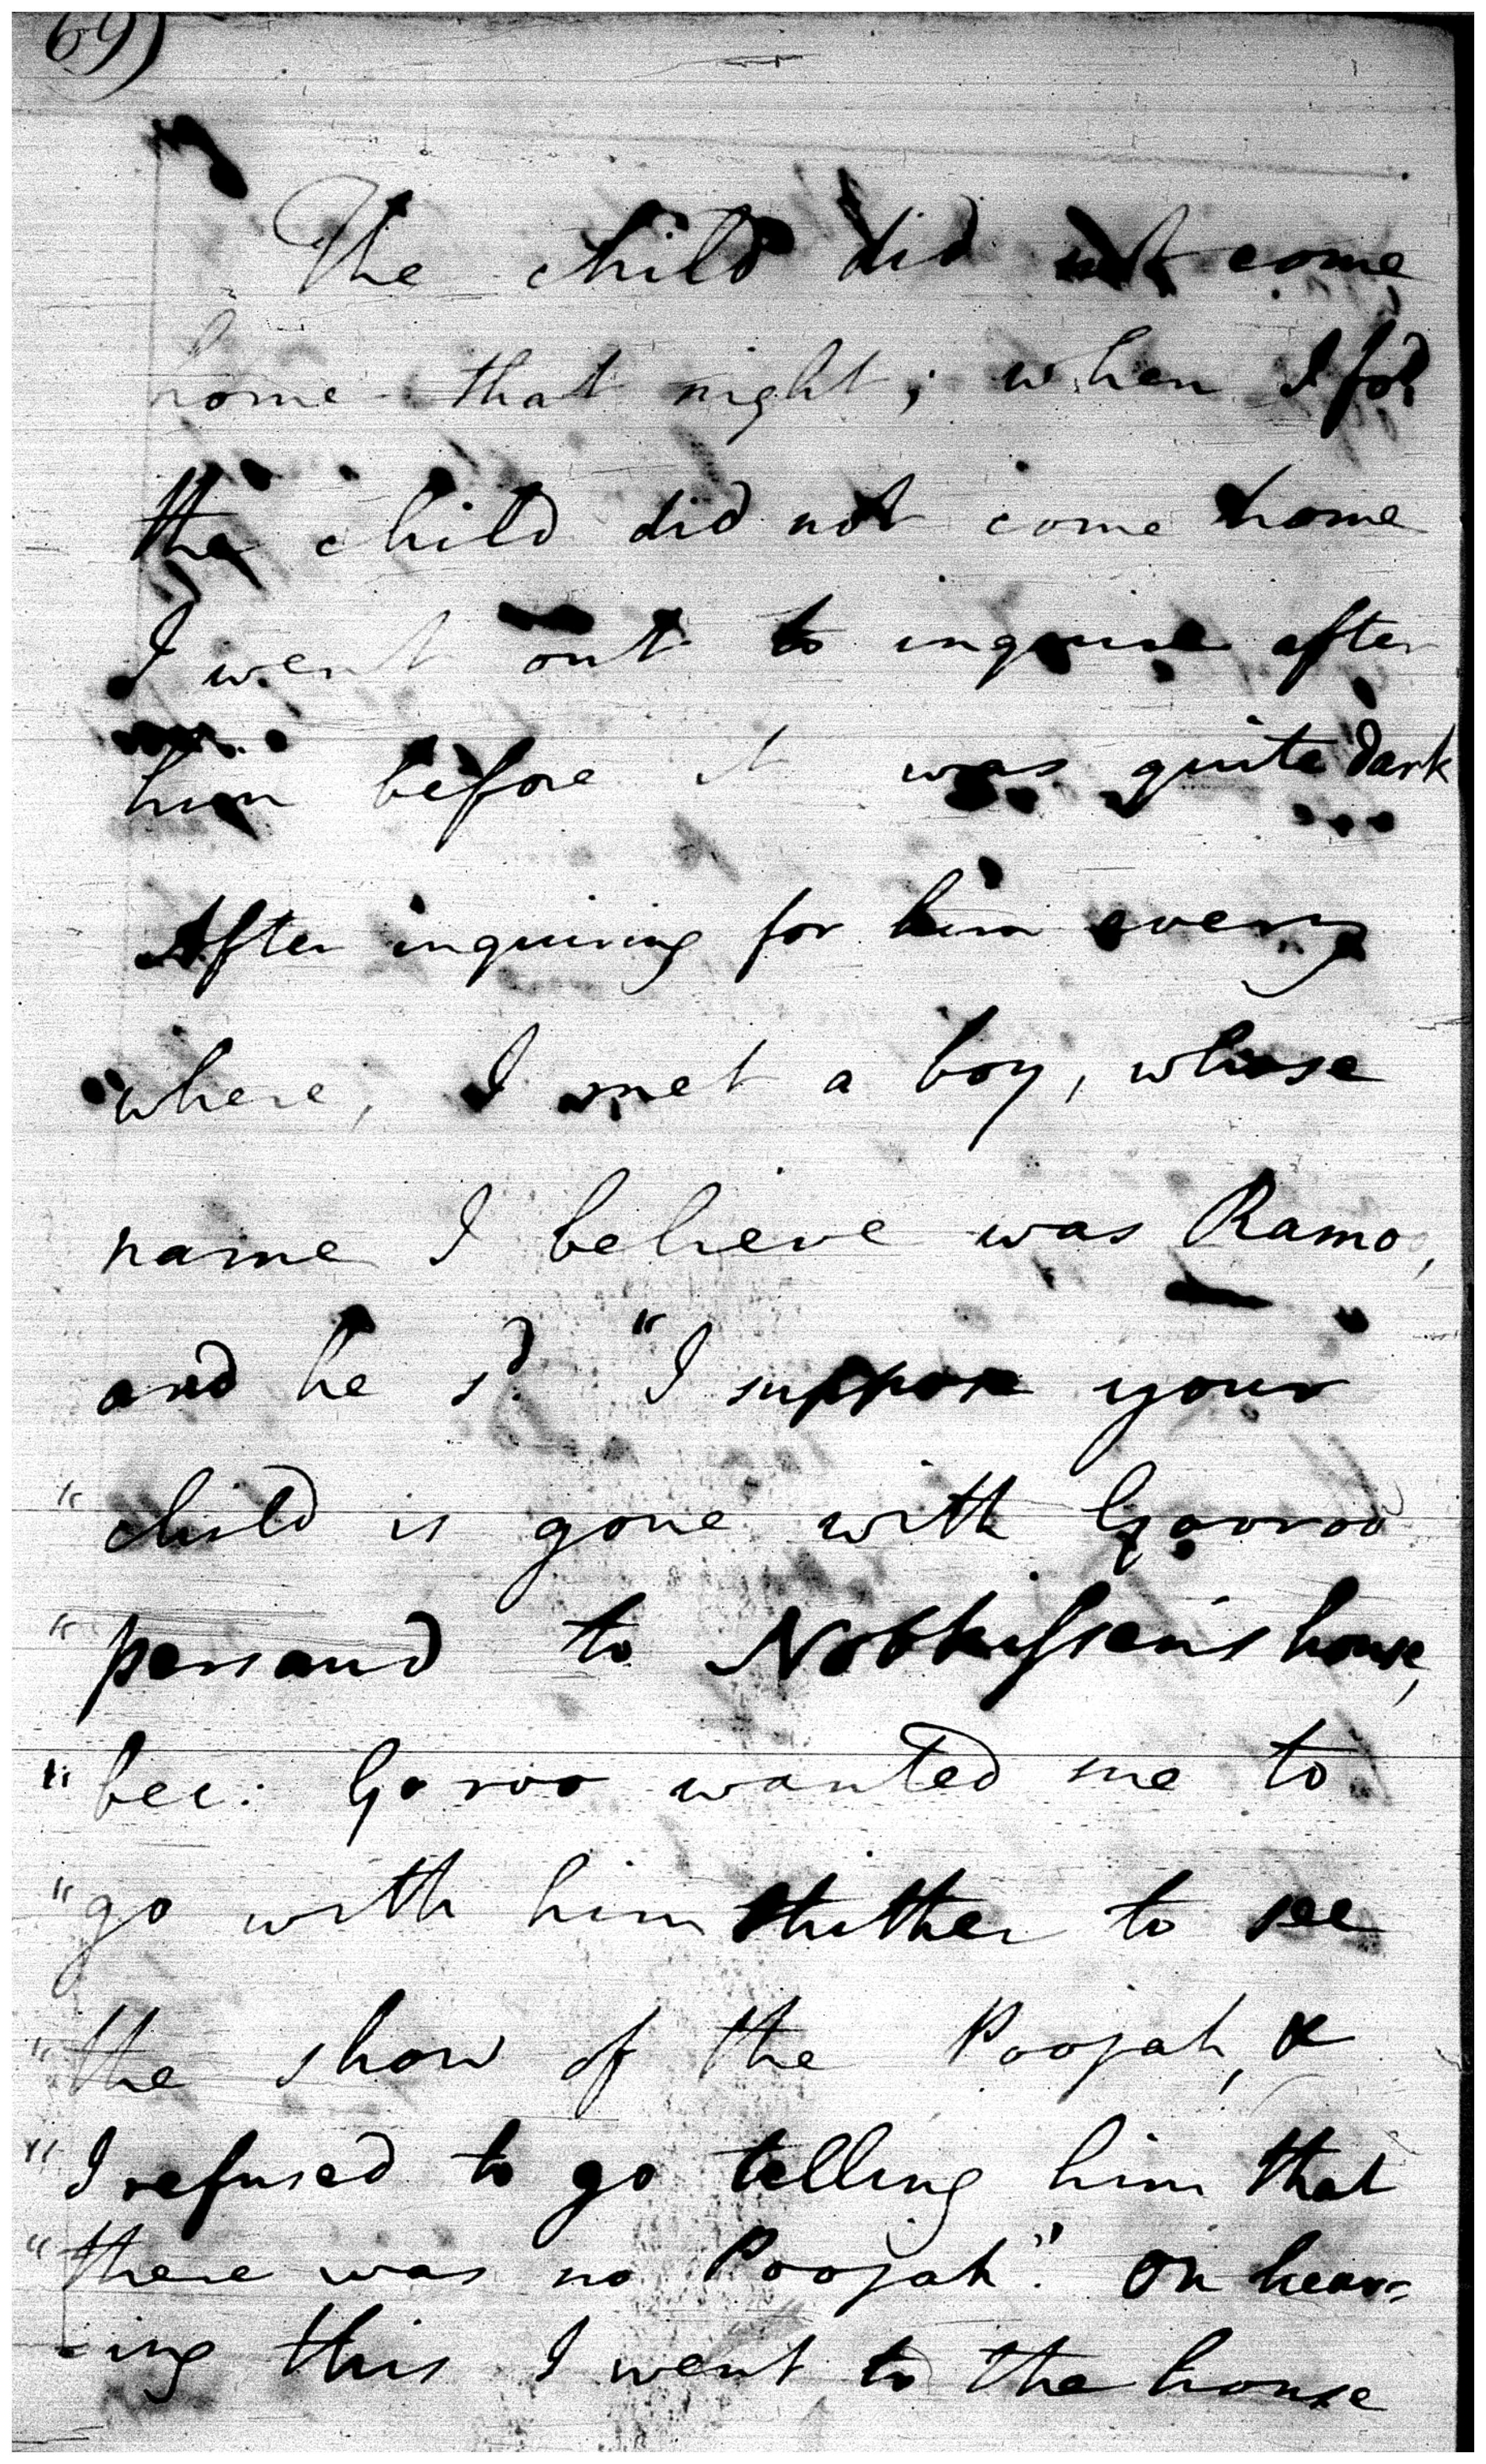 69)
The child did not come
home that night; when I fod.
the child did not come home
I went out to inquire after
him before it was quite dark
After inquiring for him every
where, I met a boy, whose
name I believe was Ramoo,
and he sd. "I suppose your
"child is gone with Gooroo
"persaud to Nobkissen's house,
"bec: Goroo wanted me to
"go with him thither to see
"the show of the Poojah, &
"I refused to go telling him that
"there was no Poojah". On hear=
-ing this I went to the house